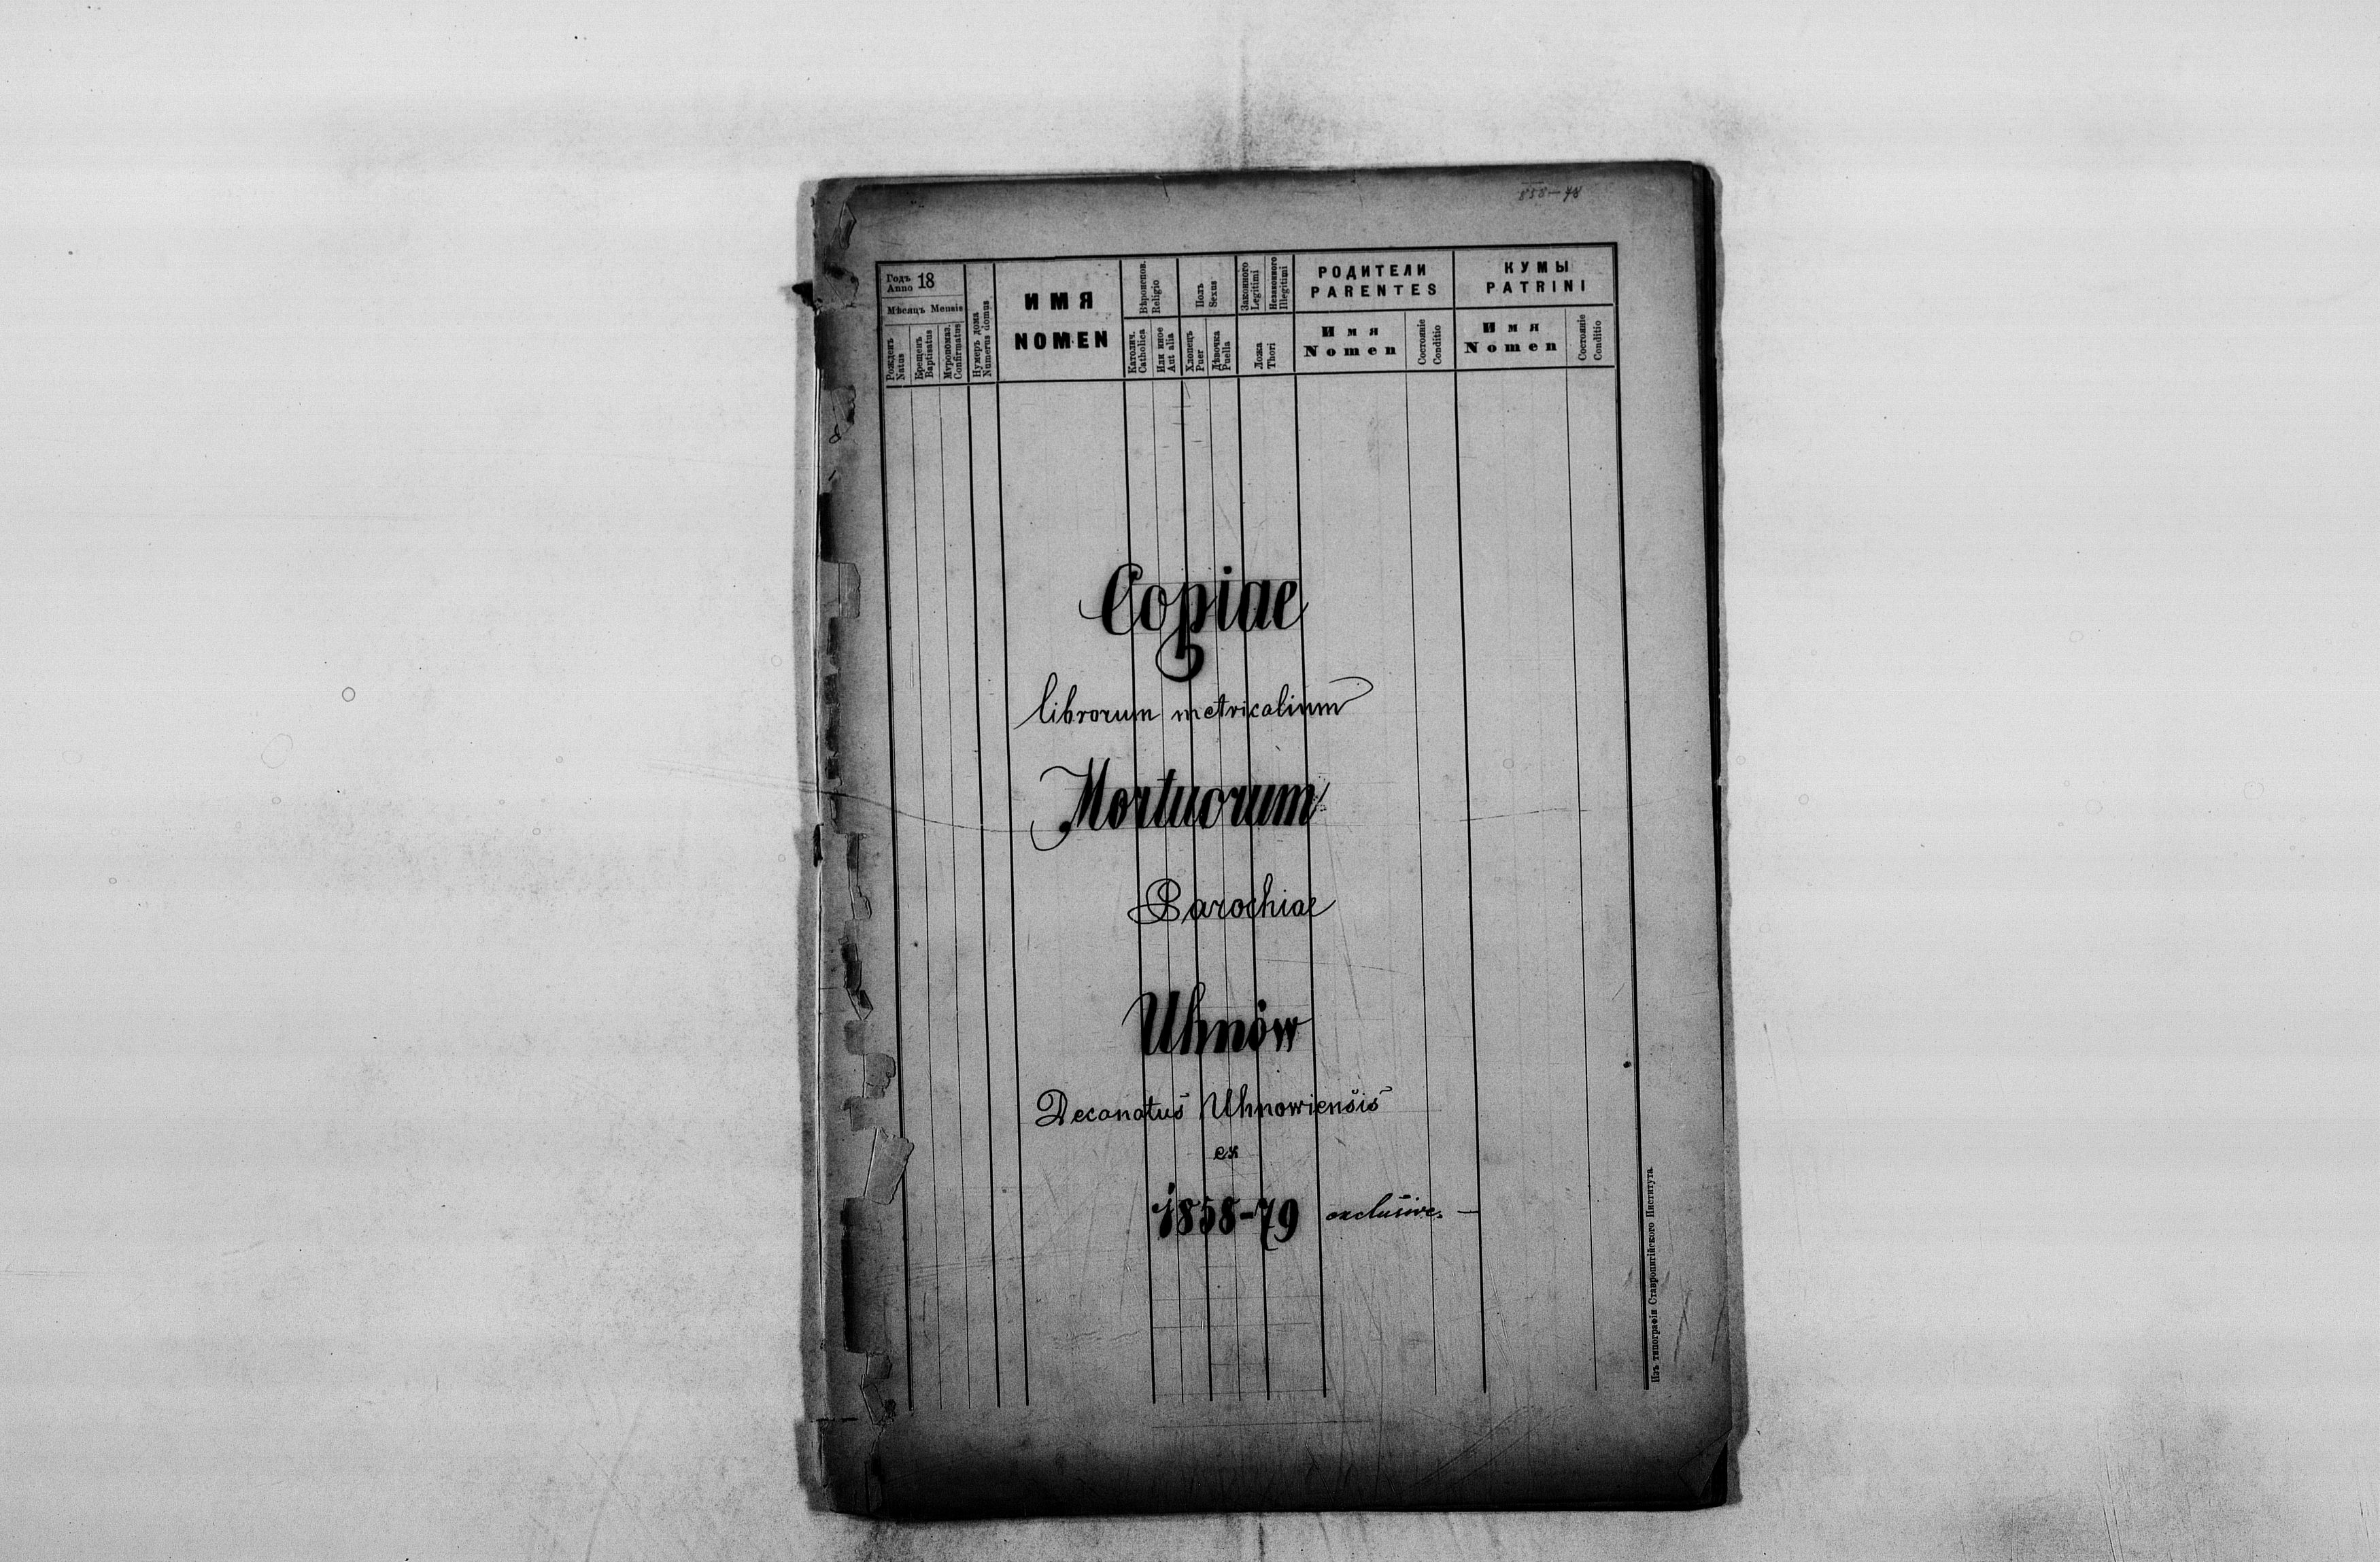 858-78
Годъ
Anno 18
Мѣсяцъ Mensis
Рожденъ
Natus
Крещенъ
Baptisatus
Мѵропомаз.
Confirmatus
Нумеръ дома
Numerus domus
ИМЯ
NOMEN
Вѣроисповѣд.
Religio
Католич.
Catholica
Или иное
Aut alia
Полъ
Sexus
Хлопецъ
Puer
Дѣвочка
Puella
Законного
Legitimi
Незаконного
Illegitimi
Ложа
Thori
РОДИТЕЛИ
PARENTES
Имя
Nomen
Состояніе
Conditio
КУМЫ
PATRINI
Имя
Nomen
Состояніе
Conditio
Copiae
librorum metricalium
Mortuorum
Parochiae
Uhnów
Decanatus Uhnowiensis
ex
1858-79 exclusive. —
Изъ типографіи Ставропигійского Института